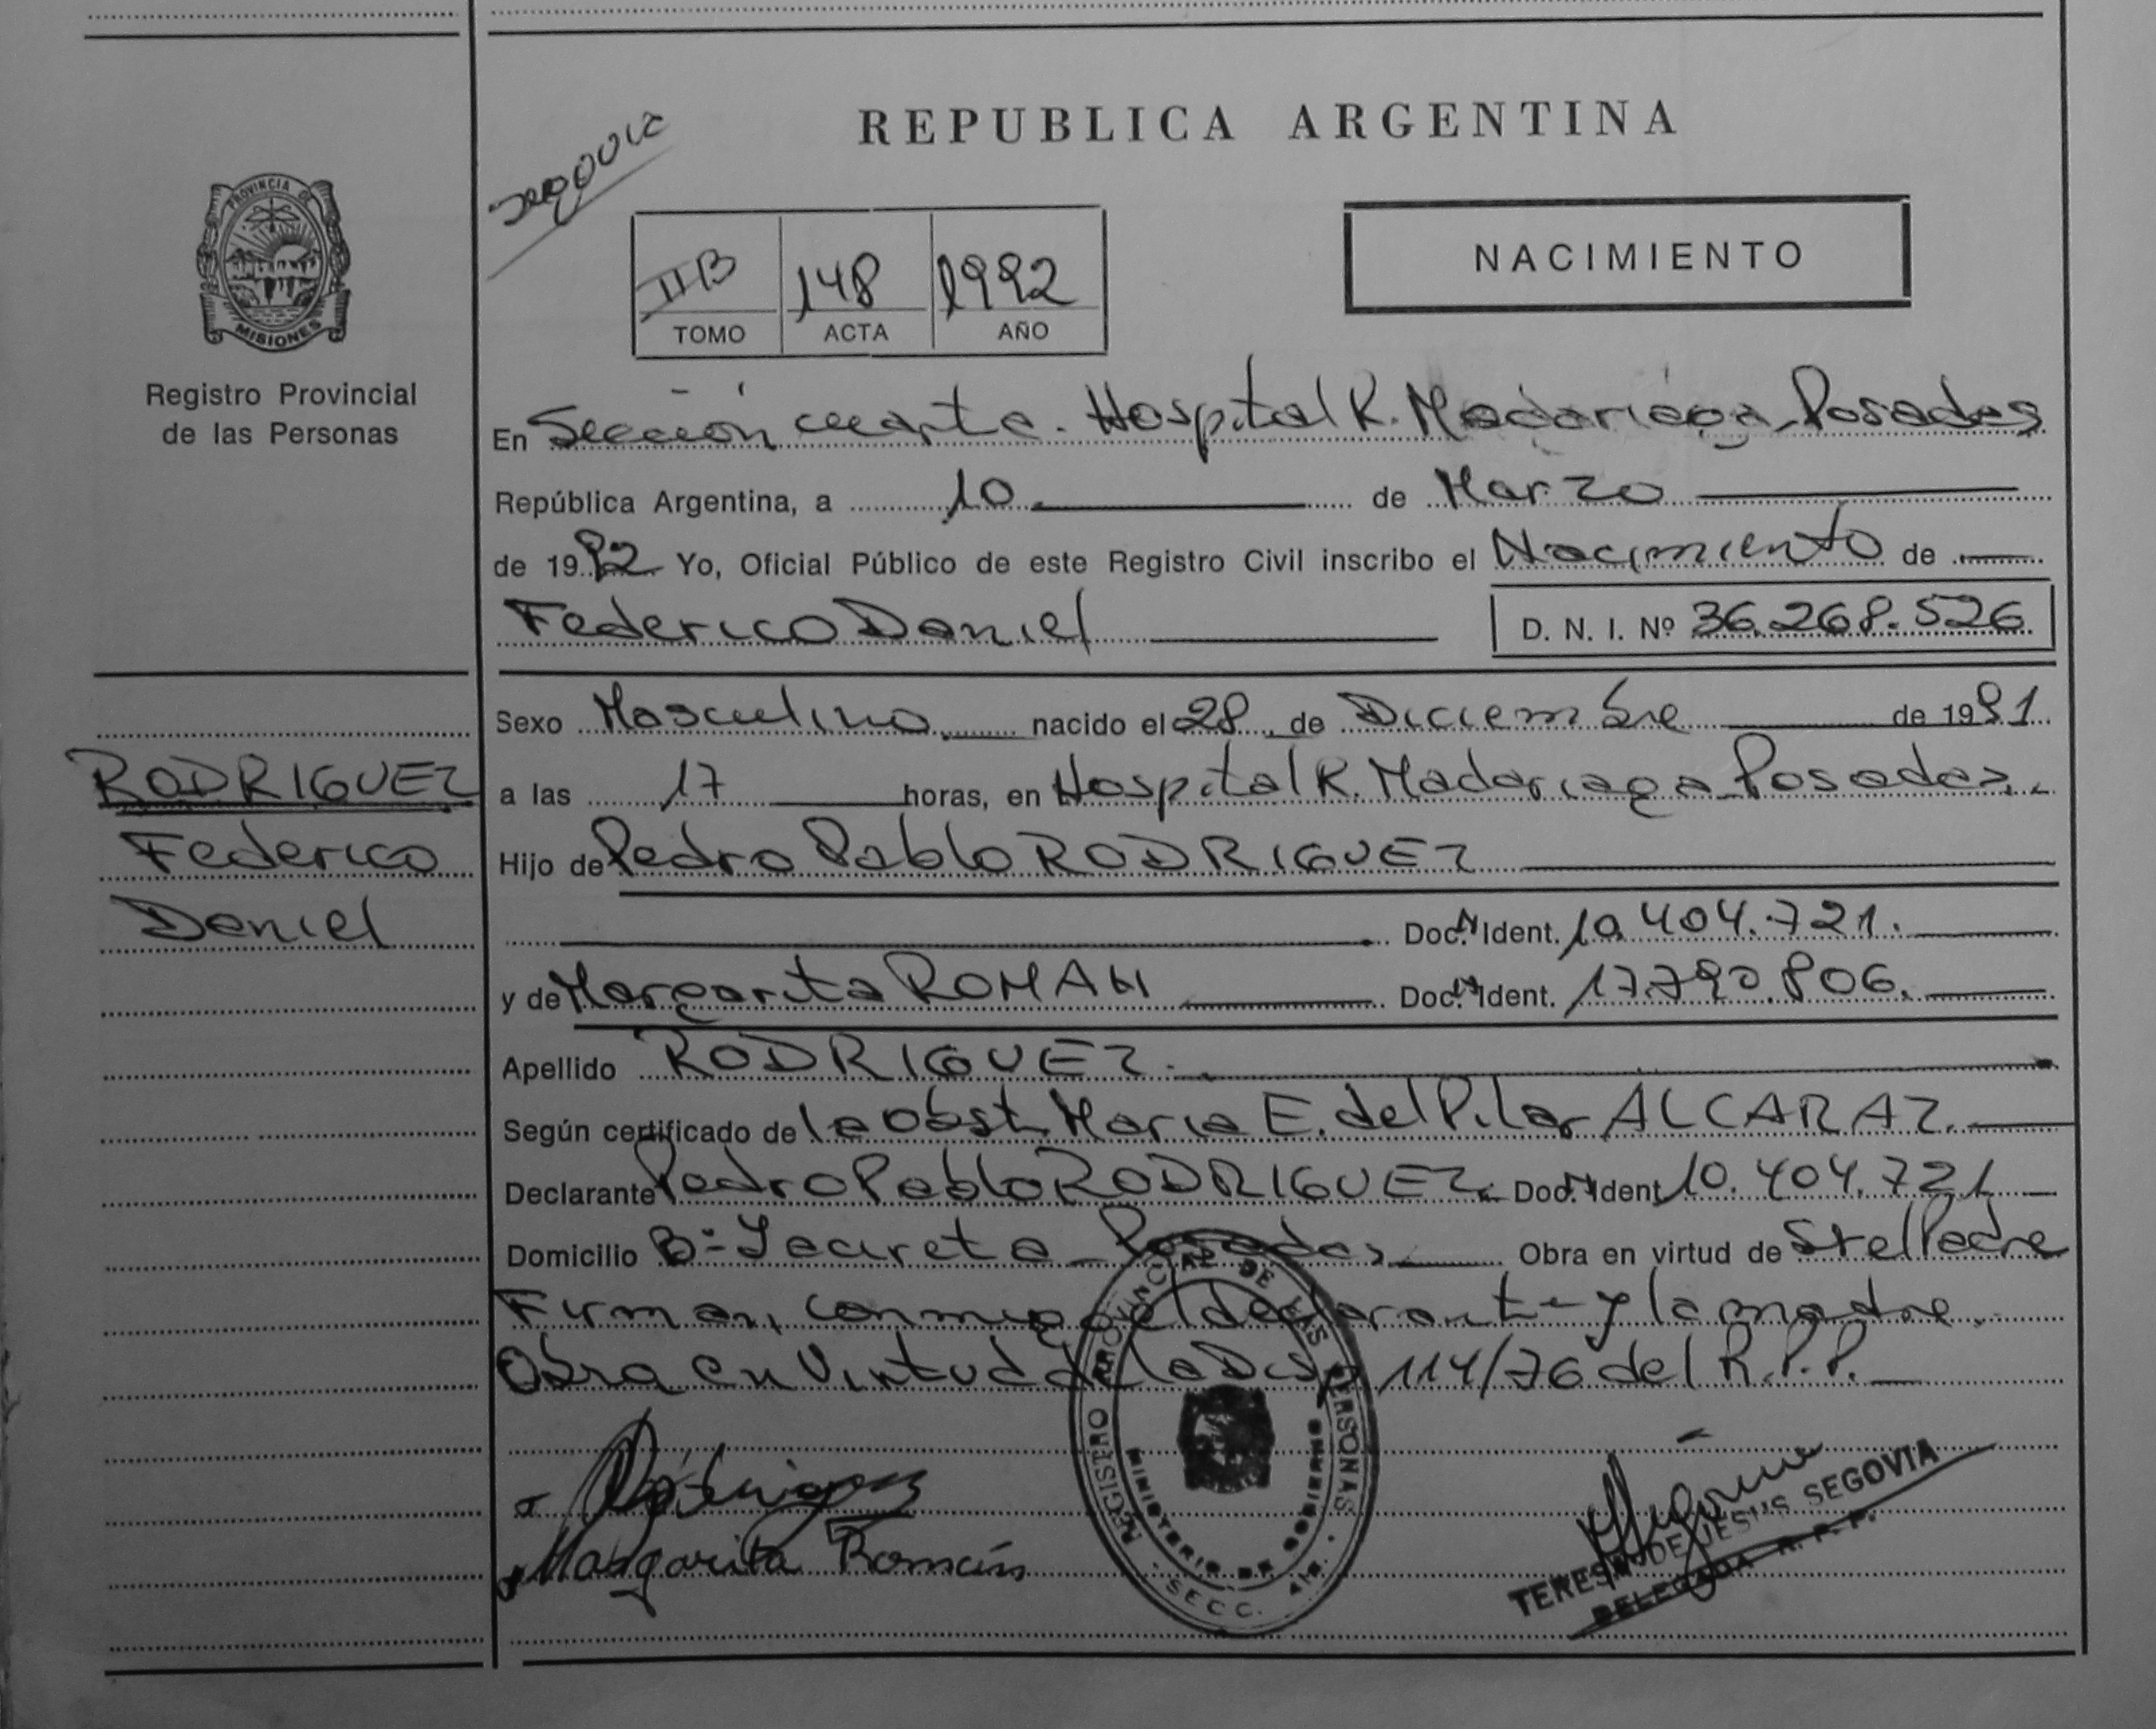 REPUBLICA ARGENTINA
Segovia
PROVINCIA DE
MISIONES
Registro Provincial
de las Personas
IIB 148 1992
TOMO ACTA AÑO
NACIMIENTO
En Sección cuarta. Hospital R. Madariaga-Posadas
República Argentina, a 10 de Marzo
de 1992 Yo, Oficial Público de este Registro Civil inscribo el Nacimiento de
Federico Daniel D. N. I. Nº 36.268.526
Sexo Masculino nacido el 28 de Diciembre de 1991
RODRIGUEZ
Federico
Daniel
a las 17 horas, en Hospital R. Madariaga-Posadas.
Hijo de Pedro Pablo RODRIGUEZ
Doc. N Ident. 10.404.721.
y de Margarita ROMAN Doc. N Ident. 17.790.806.
Apellido RODRIGUEZ.
Según certificado de la Obst. Maria E. del Pilar ALCARAZ.
Declarante Pedro Pablo RODRIGUEZ. Doc. N Ident 10.404.721
Domicilio Bº Yacireta - Posadas Obra en virtud de Ser el Padre
Firman, conmigo el declarante y la madre.
Obra en Virtud de la Disp 114/76 del R.P.P.
REGISTRO PROVINCIAL DE LAS PERSONAS
MINISTERIO DE GOBIERNO
SECC. 4ta.
Rodriguez
Margarita Román
TERESA DE JESUS SEGOVIA
DELEGADA R.P.P.